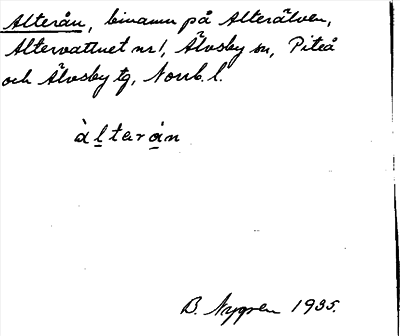 Alterån, binamn på Alterälven,
Altervattnet nr 1, Älvsby sn, Piteå
och Älvsby tg, Norrb. l.
àlterån
B. Nygren 1935.